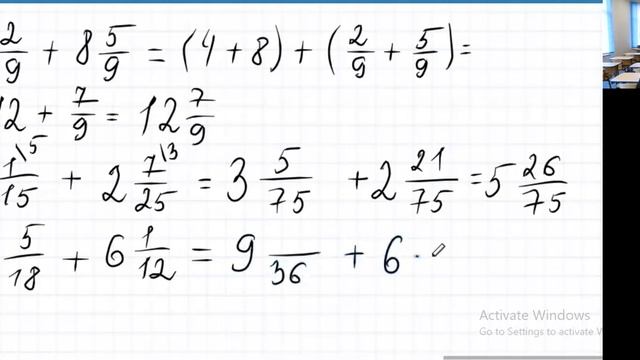 2/9 + 8 5/9 = (4 + 8) + (2/9 + 5/9) =
12 + 7/9 = 12 7/9
1\5/15 + 2 7\3/25 = 3 5/75 + 2 21/75 = 5 26/75
5/18 + 6 1/12 = 9 /36 + 6
Activate Windows
Go to Settings to activate W